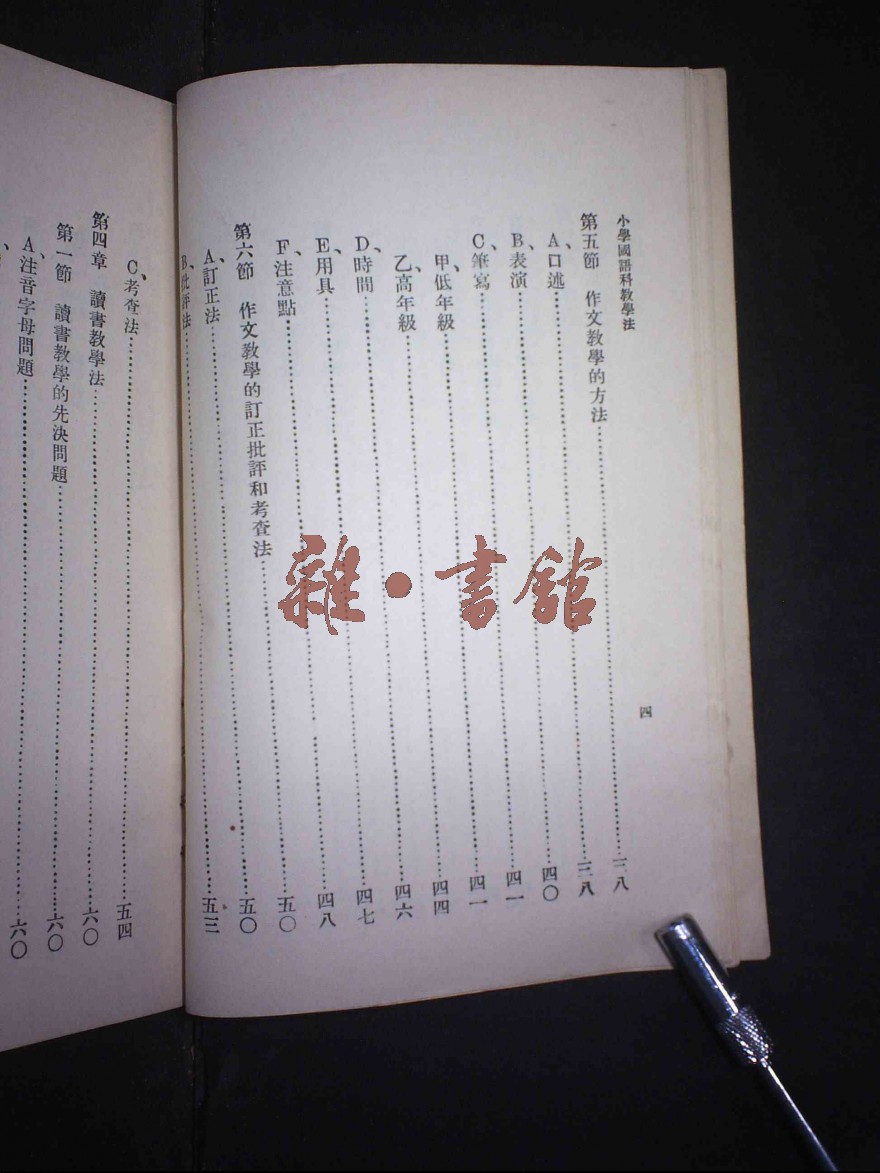 小學國語科教學法
四
第五節　作文教學的方法……三八
A、口述……三八
B、表演……四〇
C、筆寫……四一
甲、低年級……四一
乙、高年級……四四
D、時間……四六
E、用具……四七
F、注意點……四八
第六節　作文教學的訂正批評和考查法……五〇
A、訂正法……五〇
B、批評法……五三
C、考查法……五四
第四章　讀書教學法……六〇
第一節　讀書教學的先決問題……六〇
A、注音字母問題……六〇
雜·書館